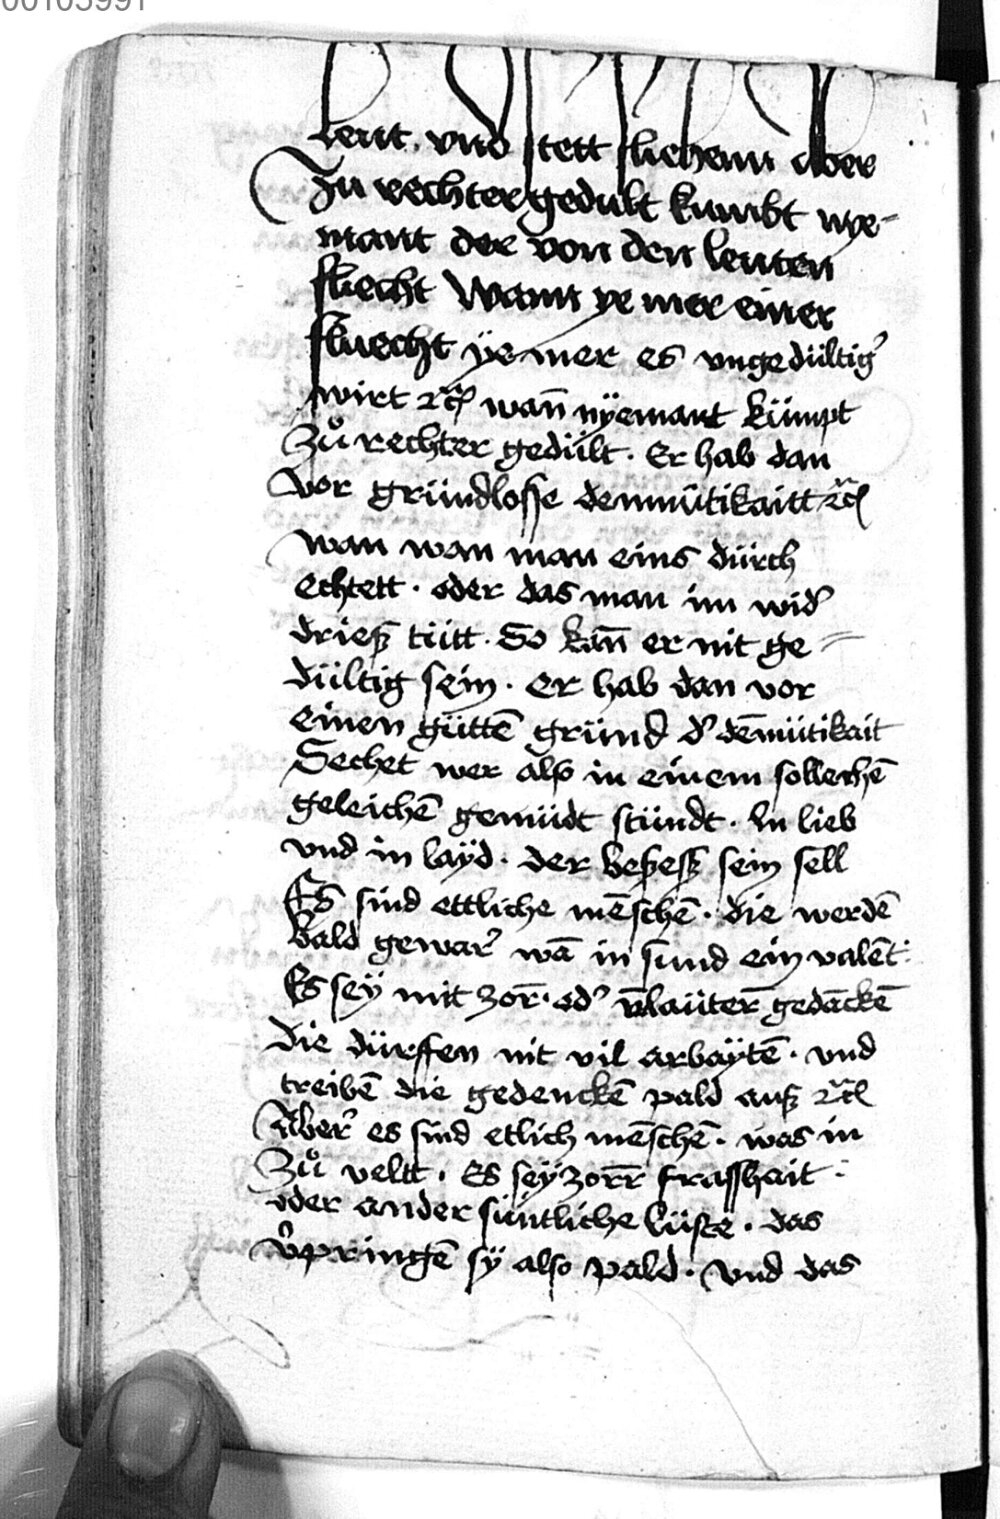 00103991
leut. vnd stett fliehenn aber
Zu rechter gedult kumbt nye-
mant der von den leuten
fliecht Wann ye mer einer
fluecht ÿe mer es vngedültig̉
wirt ꝛc̃ wañ nÿemant kümpt
Zů rechter gedült. Er hab dan
vor gründlosse demmütikaitt ꝛc̃
wan wan man eins dürch
echtett. oder das man im wid̉
drieß tütt. So kañ er nit ge-
dültig sein. er hab dan vor
einen gütte͂ gründ d̉ de͂mütikait
Sechet wer also in einem solleche͂
geleiche͂ gemüdt stündt. In lieb
vnd in laÿd. der beseß sein sell
Es sind ettliche me͂sche͂. die werde͂
bald gewar̉ wa͂ in sund ein vale͂t:
Es seÿ mit zor͂. od̉ v͂lauter͂ geda͂cke͂
die dürffen nit vil arbaÿte͂. vnd
treibe͂ die gedencke͂ pald auß ꝛc̃
Aber̉ es sind etlich me͂sche͂. was in
Zů veltt. Es seÿ zor͂r frasshait.
oder ander süntliche lüste. das
v̉pringe͂ sÿ also pald. vnd das